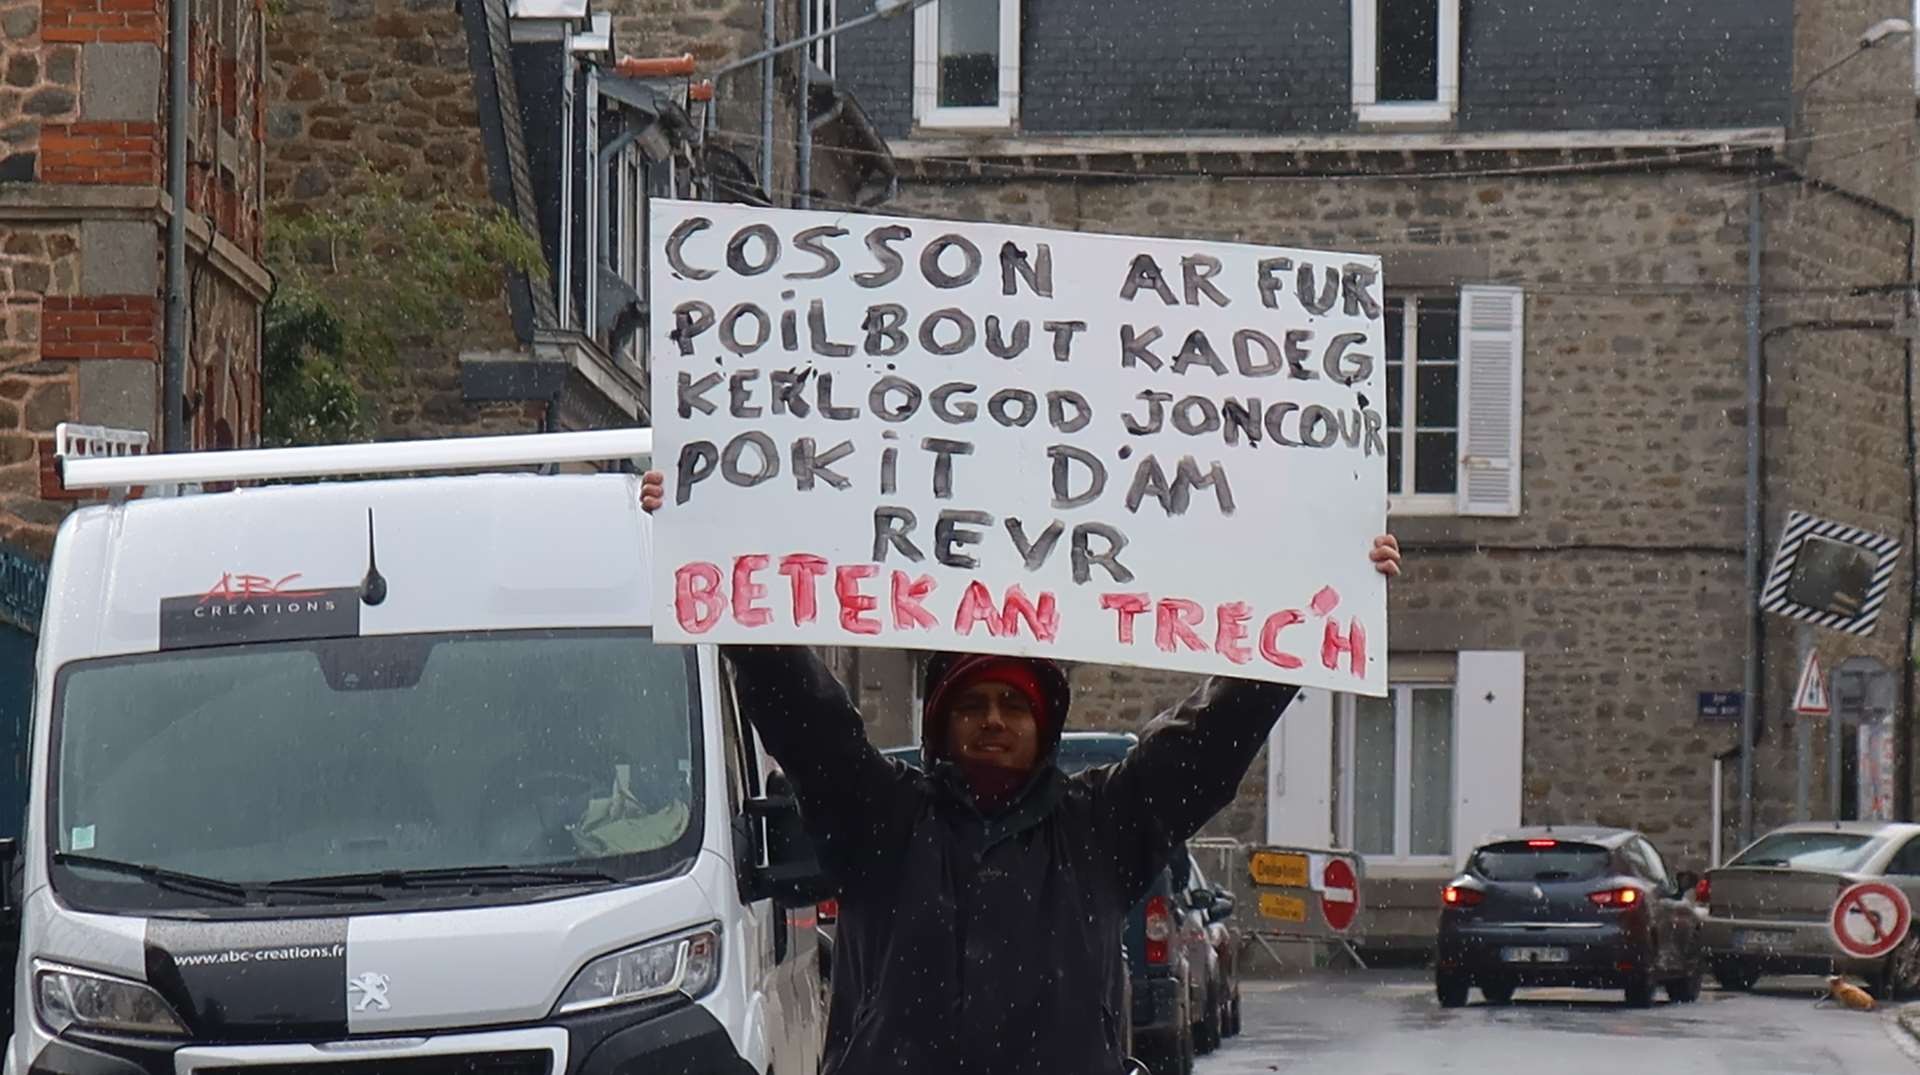 COSSON AR FUR
POiLBOUT KADEG
KERLOGOD JONCOUR
POKiT D'AM
REVR
BETEK AN TREC'H
ABC
CREATIONS
www.abc-creations.fr
Déviation